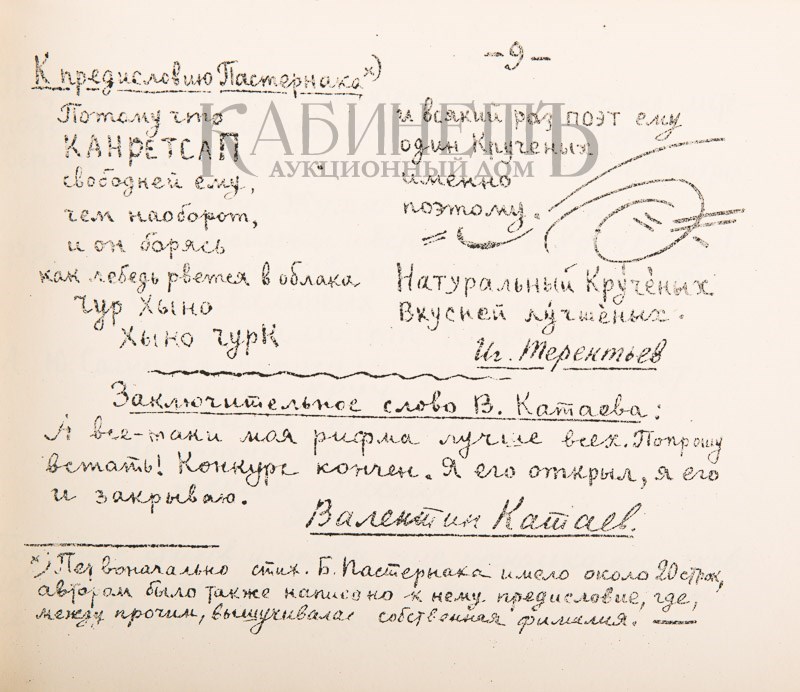 -9-
К предисловию Пастернака х)
Потому что
КАНРЕТСАП
свободней ему,
чем наоборот,
и он борясь
как лебедь рвется в облака
Чур Хыно
Хыно Чурк
и всякий раз поэт ему
один Крученых
именно
поэтому.
Натуральный Кру́чёных
Вкусней лу́чшёных.
Иг. Терентьев
Заключительное слово В. Катаева:
А все-таки моя рифма лучше всех. Попрошу
встать! Конкурс кончен. Я его открыл, я его
и закрываю.
Валентин Катаев.
х) Первоначально стих. Б. Пастернака имело около 20 строк,
автором было также написано к нему предисловие, где,
между прочим, вышучивалас собственная фамилия.
КАБИНЕТЪ
АУКЦИОННЫЙ ДОМ